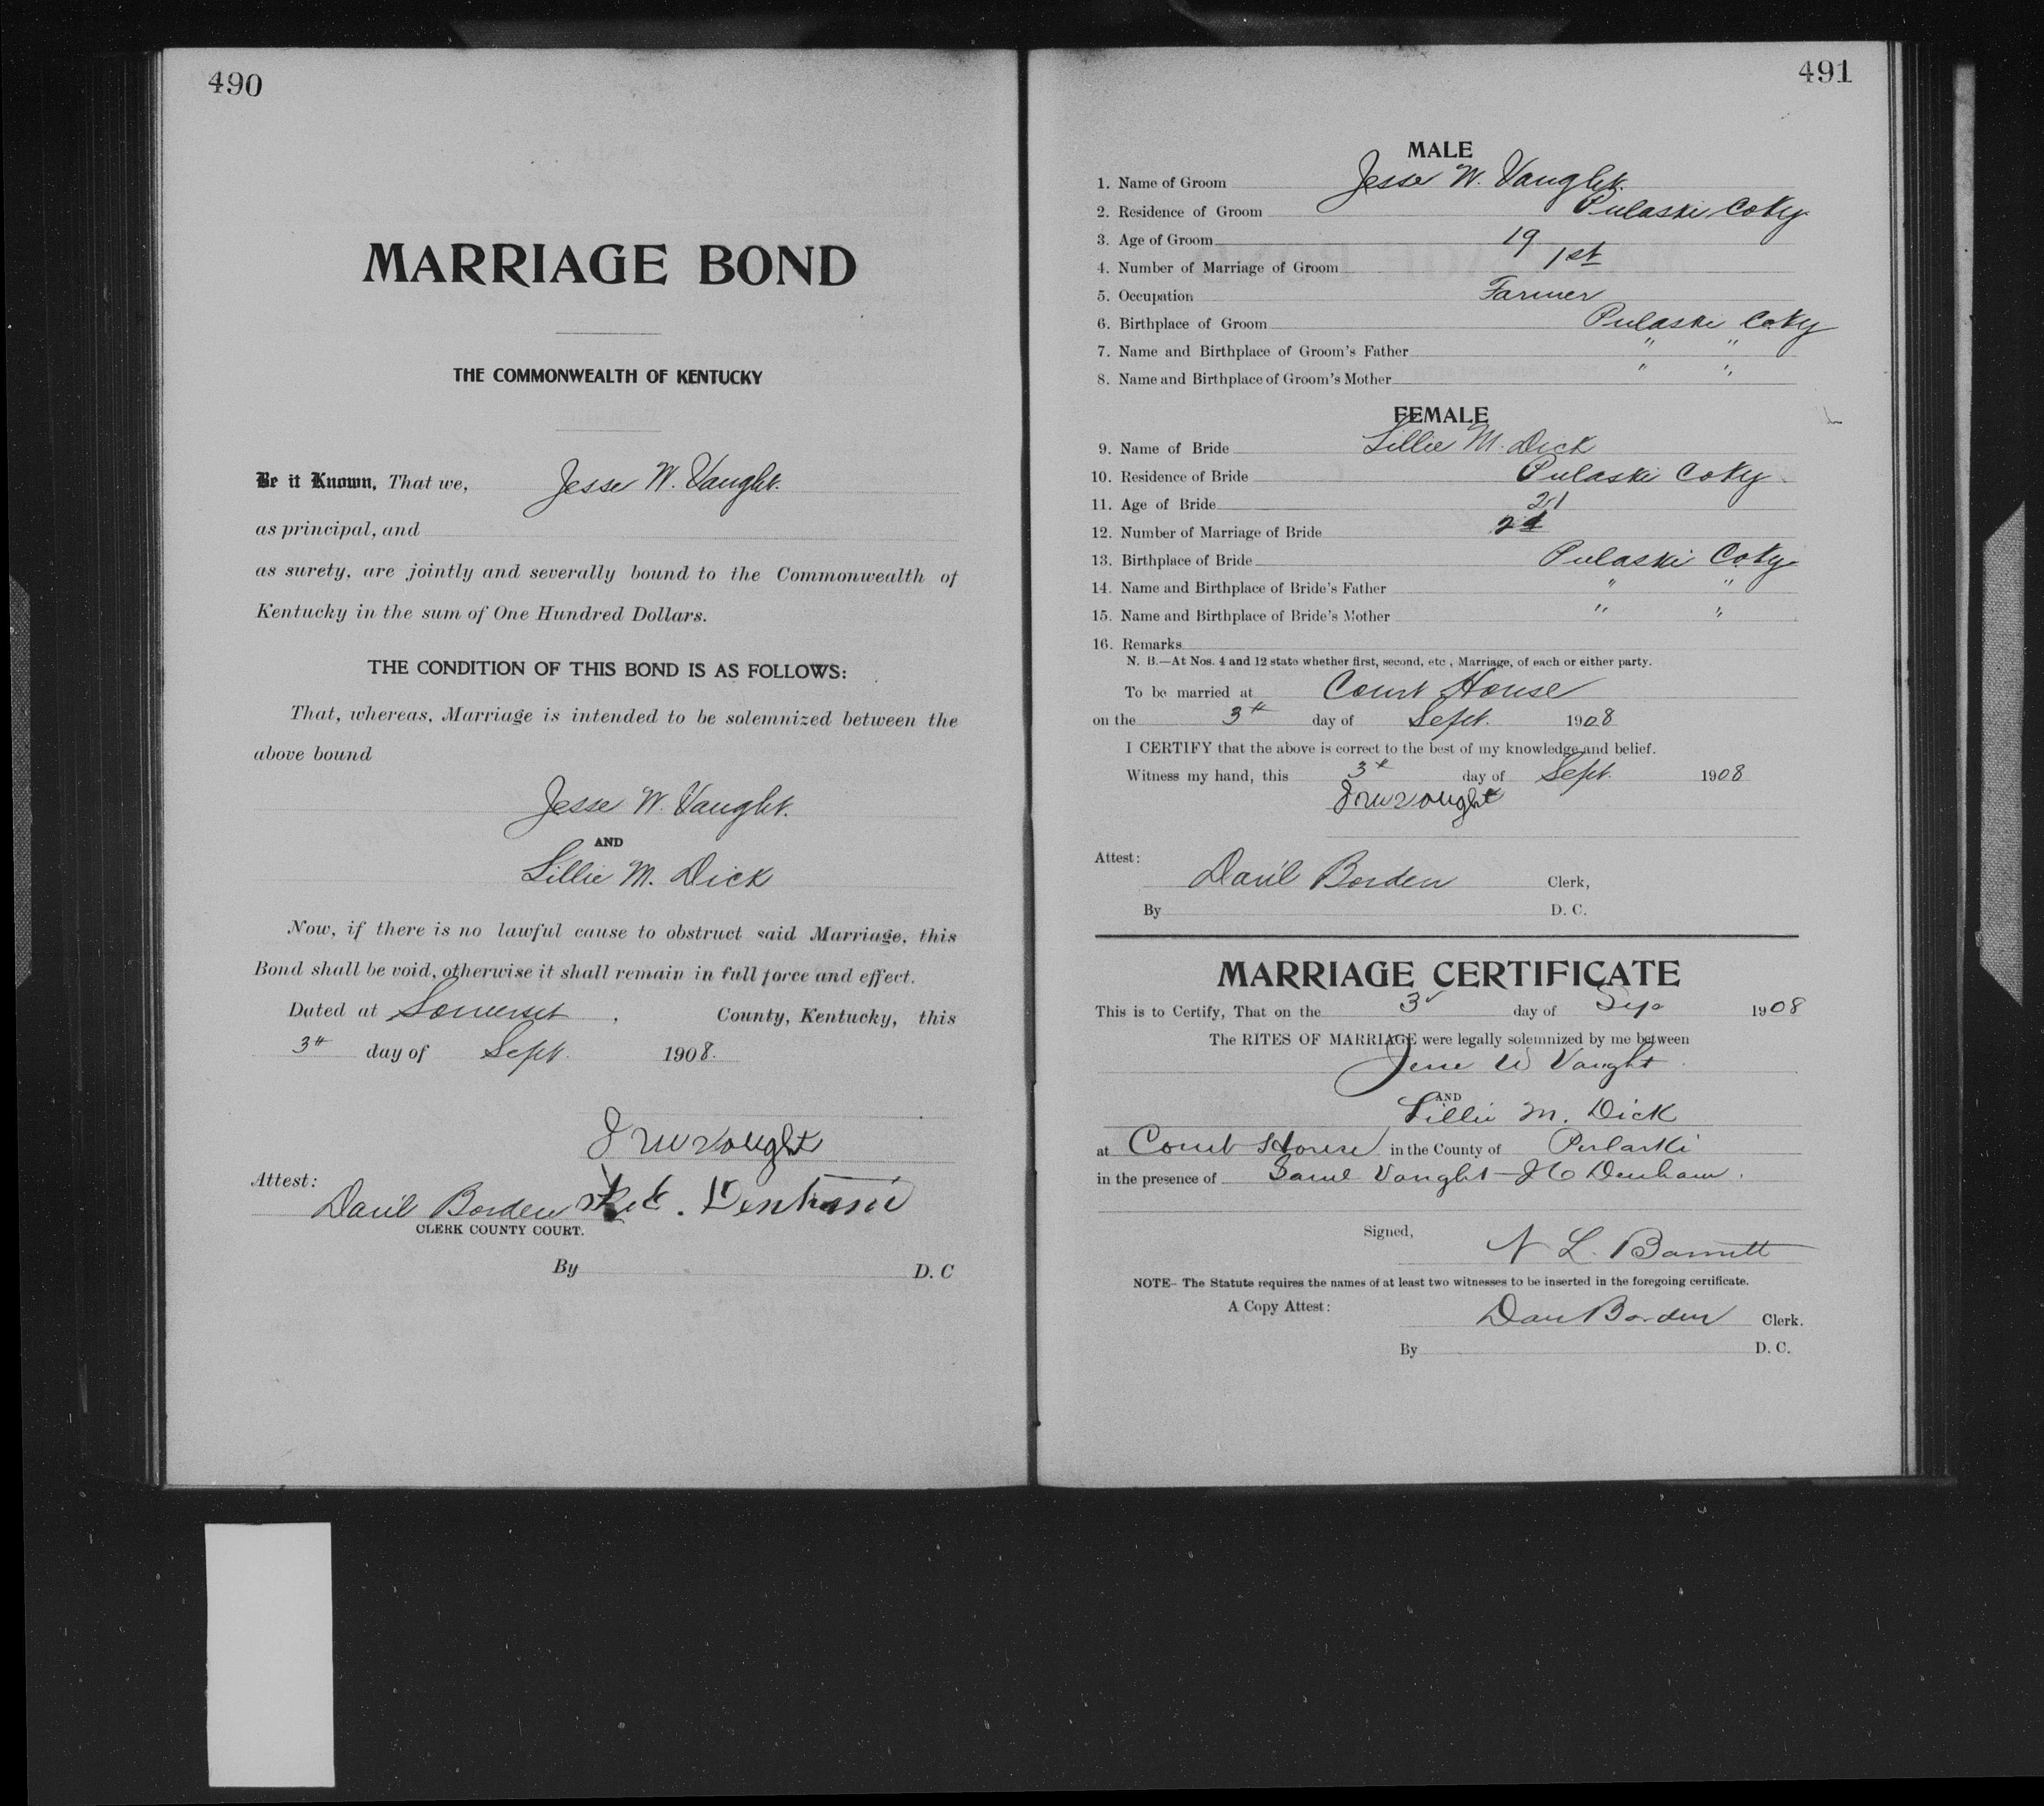 490
MARRIAGE BOND
THE COMMONWEALTH OF KENTUCKY
Be it Known, That we, Jesse W. Vaught.
as principal, and
as surety, are jointly and severally bound to the Commonwealth of
Kentucky in the sum of One Hundred Dollars.
THE CONDITION OF THIS BOND IS AS FOLLOWS:
That, whereas, Marriage is intended to be solemnized between the
above bound
Jesse W. Vaught.
AND
Lillie M. Dick
Now, if there is no lawful cause to obstruct said Marriage, this
Bond shall be void, otherwise it shall remain in full force and effect.
Dated at Somerset, County, Kentucky, this
3rd day of Sept. 1908.
J W Vought
Attest:
Danl Borden
CLERK COUNTY COURT.
By D. C
491
MALE
1. Name of Groom Jesse W. Vaught.
2. Residence of Groom Pulaski Co Ky
3. Age of Groom 19
4. Number of Marriage of Groom 1st
5. Occupation Farmer
6. Birthplace of Groom Pulaski Co. Ky
7. Name and Birthplace of Groom's Father " "
8. Name and Birthplace of Groom's Mother " "
FEMALE
9. Name of Bride Lillie M. Dick
10. Residence of Bride Pulaski Co Ky
11. Age of Bride 21
12. Number of Marriage of Bride 2d
13. Birthplace of Bride Pulaski Co Ky
14. Name and Birthplace of Bride's Father " "
15. Name and Birthplace of Bride's Mother " "
16. Remarks
N. B.—At Nos. 4 and 12 state whether first, second, etc, Marriage, of each or either party.
To be married at Court House
on the 3rd day of Sept. 1908
I CERTIFY that the above is correct to the best of my knowledge and belief.
Witness my hand, this 3rd day of Sept. 1908
J W Vought
Attest:
Danl Borden Clerk,
By D. C.
MARRIAGE CERTIFICATE
This is to Certify, That on the 3d day of Sep 1908
The RITES OF MARRIAGE were legally solemnized by me between
Jesse W Vaught
AND
Lillie M. Dick
at Court House in the County of Pulaski
in the presence of Saml Vaught - J C Denham.
Signed,
N L. Barnett
NOTE- The Statute requires the names of at least two witnesses to be inserted in the foregoing certificate.
A Copy Attest:
Dan Borden Clerk.
By D. C.